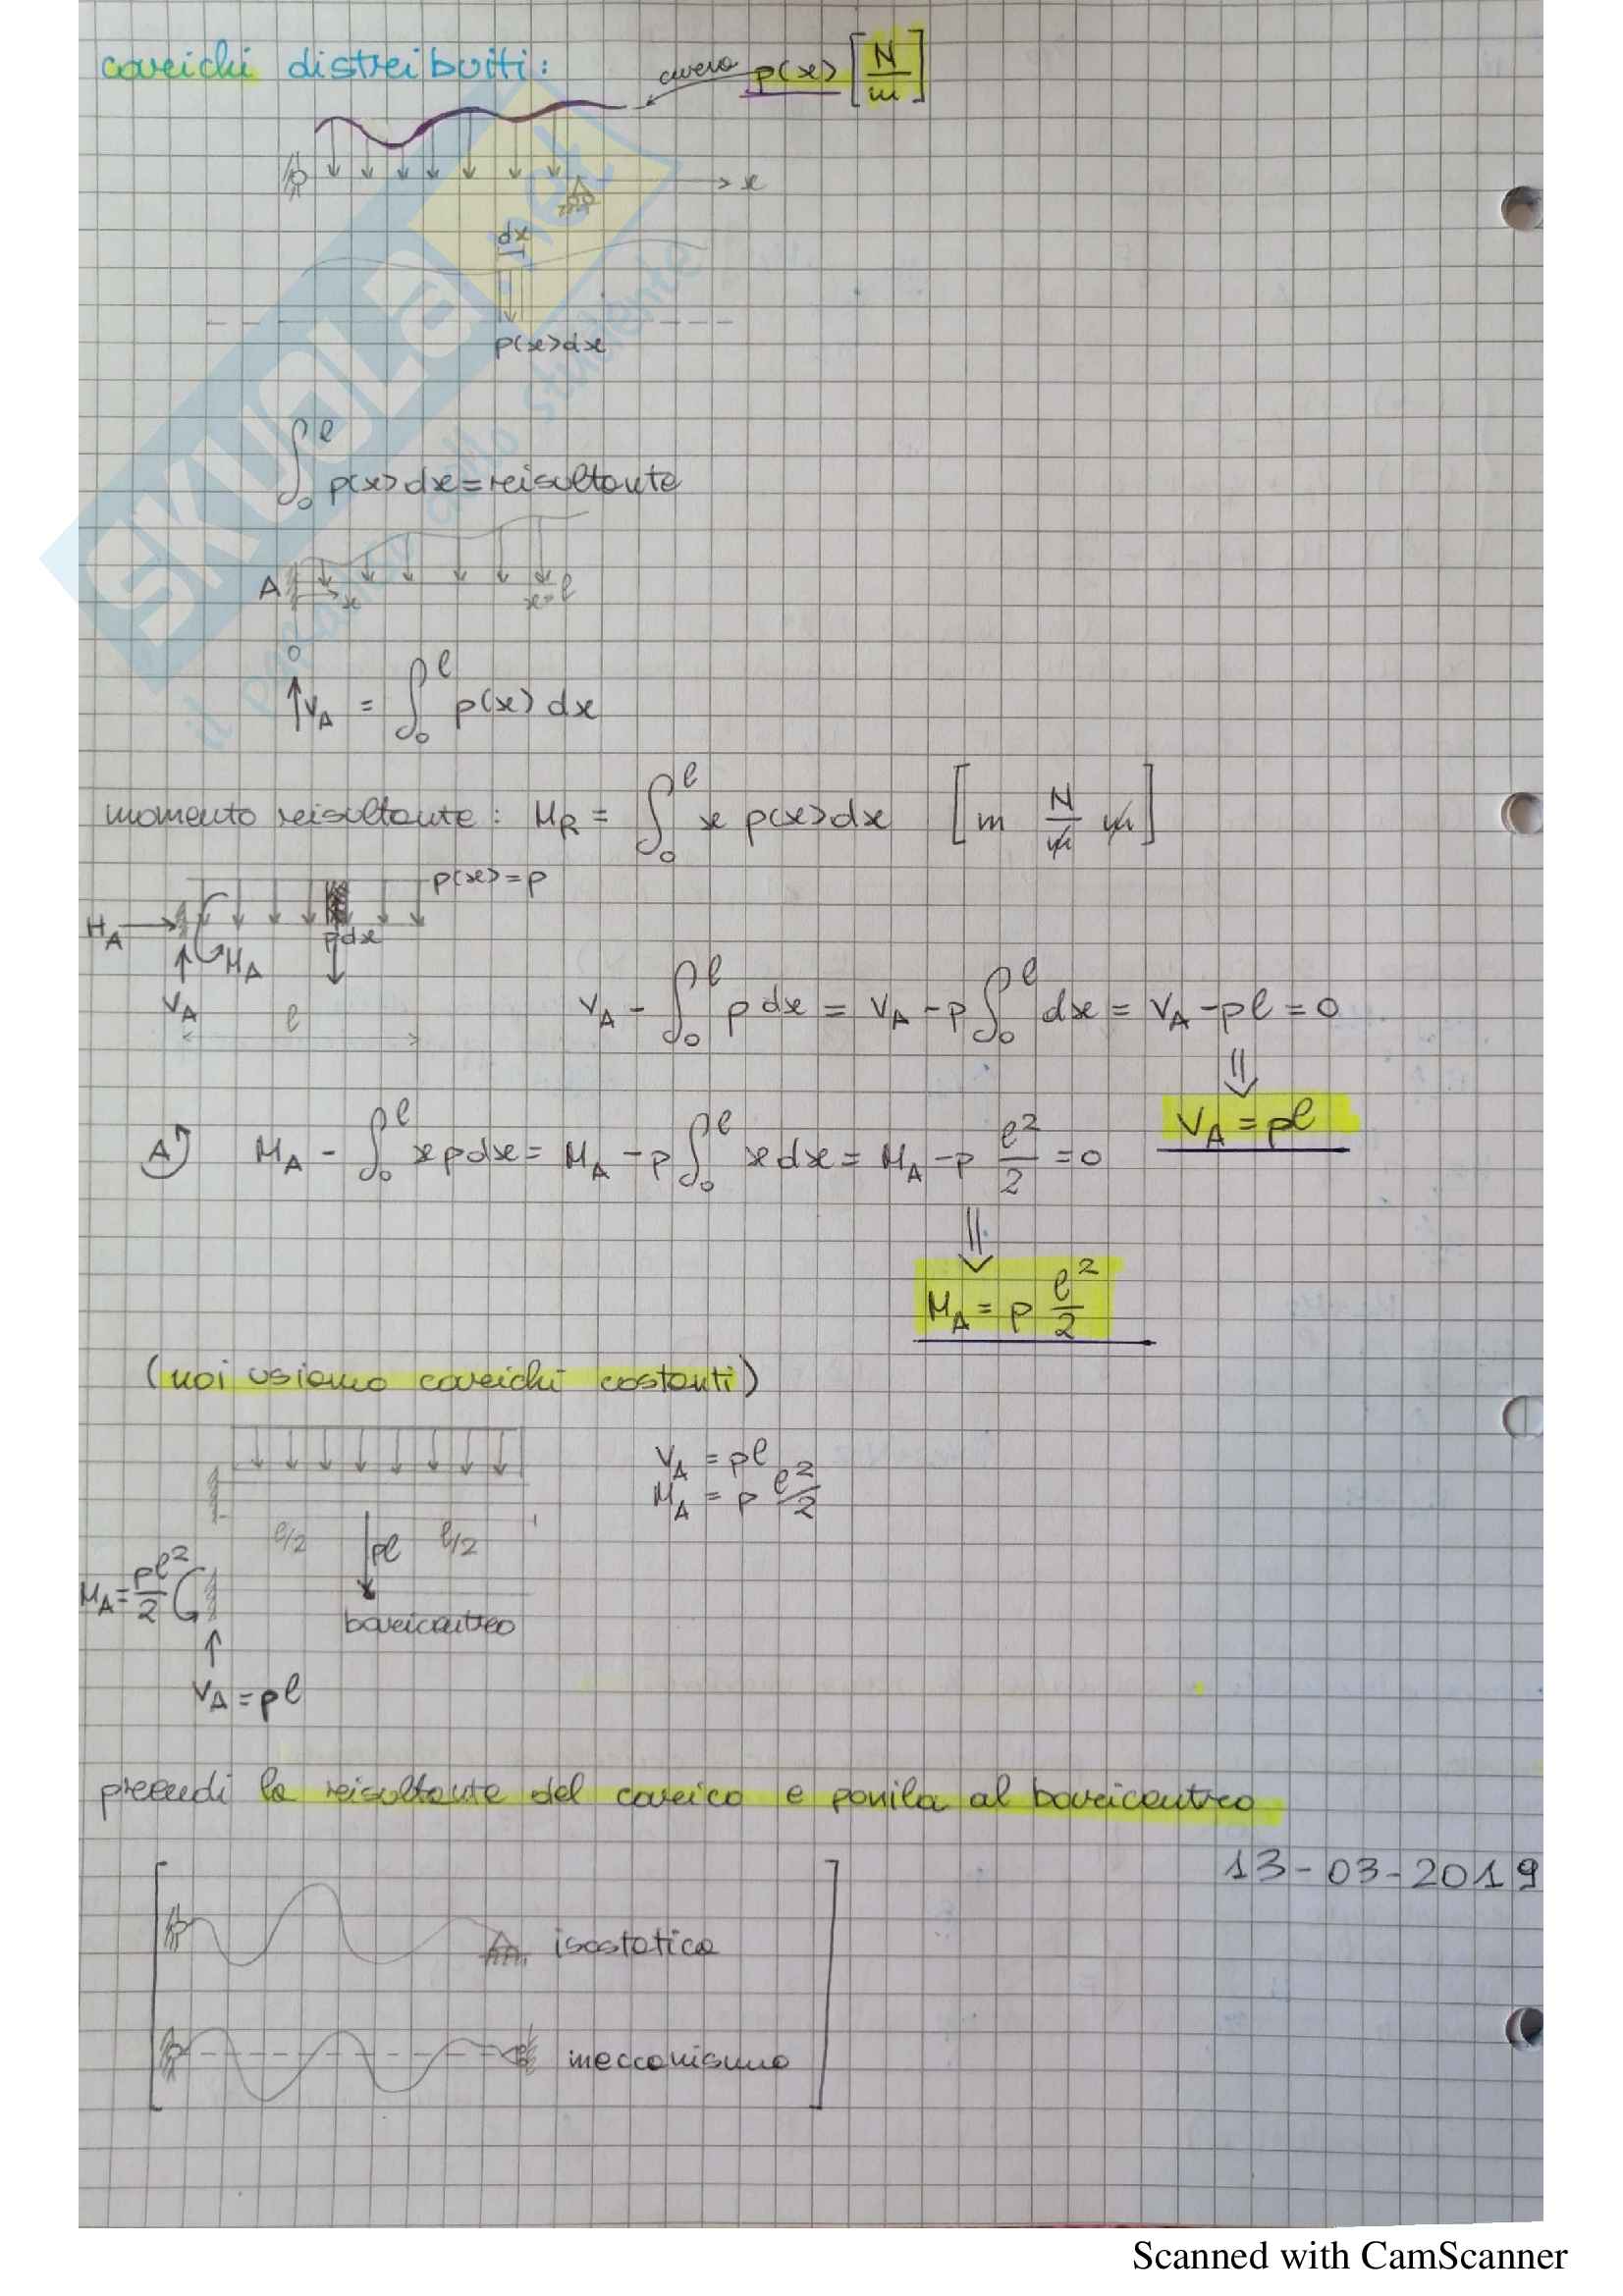 carichi distribuiti:
curva p(x) [N/m]
x
dx
p(x)dx
∫₀ˡ p(x)dx = risultante
A
x
x=l
0
↑V_A = ∫₀ˡ p(x) dx
momento risultante: M_R = ∫₀ˡ x p(x)dx [m N/m m]
p(x)=p
H_A
pdx
M_A
V_A
l
V_A - ∫₀ˡ p dx = V_A - p∫₀ˡ dx = V_A - pl = 0
⇓
V_A = pl
A) M_A - ∫₀ˡ x p dx = M_A - p∫₀ˡ x dx = M_A - p l²/2 = 0
⇓
M_A = p l²/2
(noi usiamo carichi costanti)
V_A = pl
M_A = p l²/2
l/2 pl l/2
M_A = pl²/2
baricentro
V_A = pl
prendi la risultante del carico e ponila al baricentro
13-03-2019
isostatica
meccanismo
SKUOLA.net
il paradiso dello studente
Scanned with CamScanner